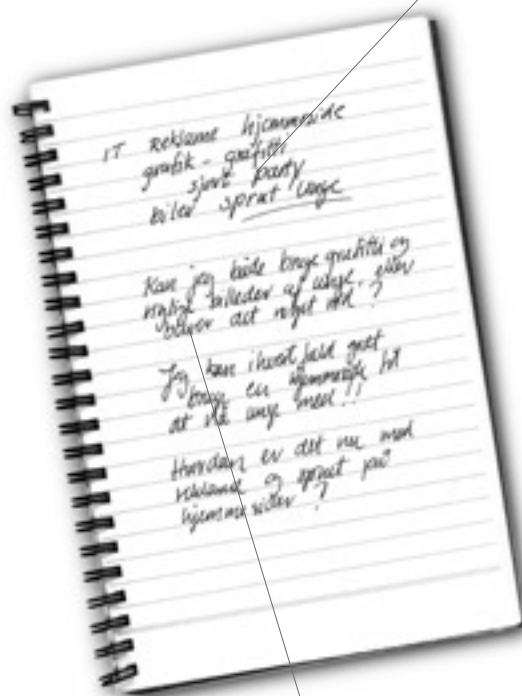 IT Reklame hjemmeside
grafik - grafitti
sjovt party
biler sprut unge
Kan jeg både bruge grafitti og
rigtige billeder af unge, eller
bliver det noget rod?
Jeg kan ihvert fald godt
bruge en hjemmeside til
at nå unge med!!
Hvordan er det nu med
reklame og sprut på
hjemmesider?